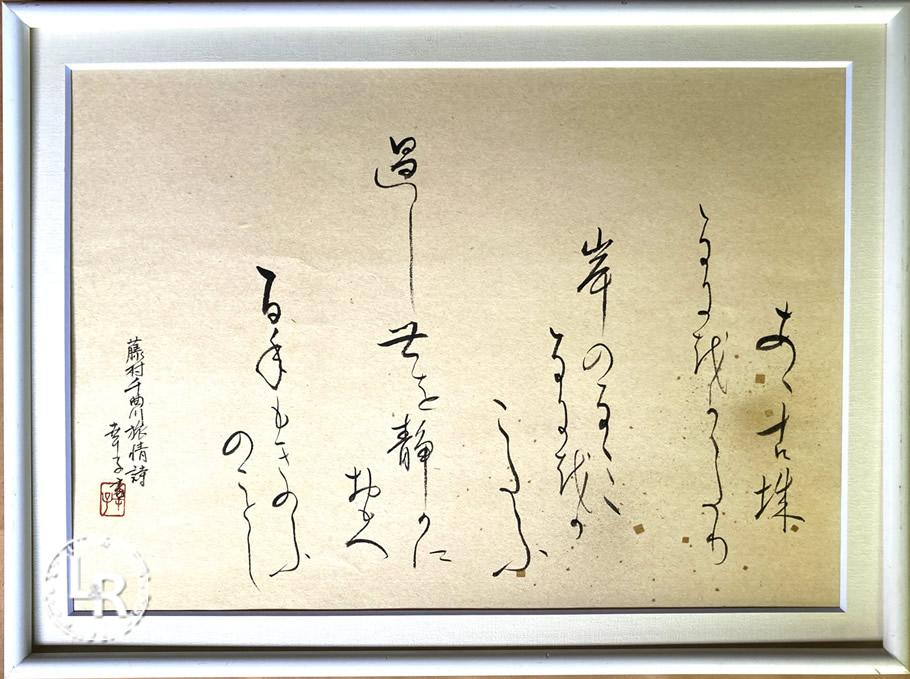 あゝ古城
なにをかかたり
岸のなみ
なにをか
こたふ
過し世を静かに
おもへ
百年もきのふ
のことし
藤村千曲川旅情詩
幸子
L&R